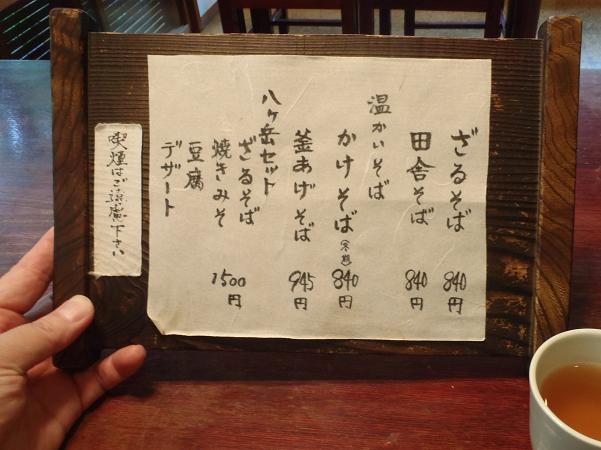 ざるそば 840円
田舎そば 840円
温かいそば
かけそば(冬期) 840円
釜あげそば 945円
八ヶ岳セット
ざるそば
焼きみそ 1500円
豆腐
デザート
喫煙はご遠慮下さい